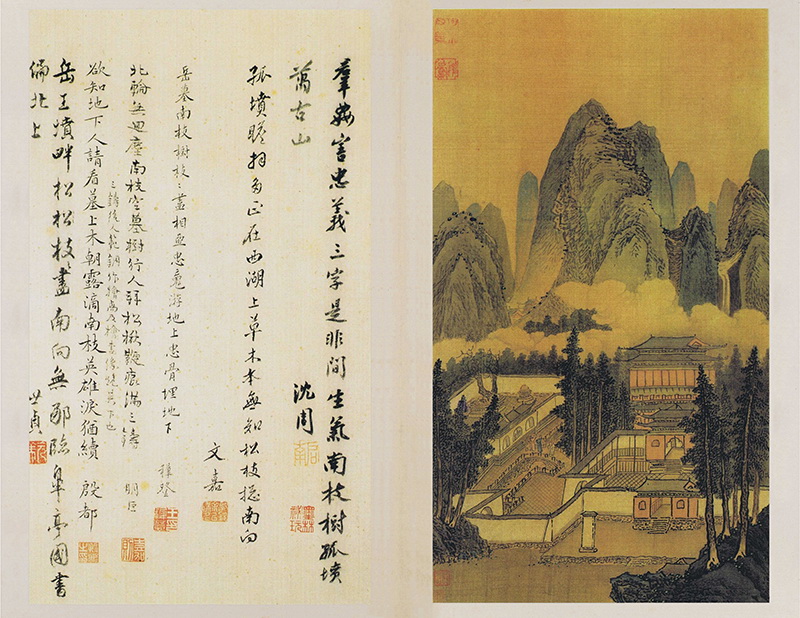 羣奸害忠義三字是非間生氣南枝樹孤墳
萬古山
沈周
孤墳瞻拜多正在西湖上草木本無知松枝總南向
文嘉
岳墓南枝樹枝〻盡相無忠魂游地上忠骨埋地下
穉登
北轅無迴塵南枝空墓樹行人拜松楸痕滿三鑄
明臣
三鑄後人範銅作檜
欲知地下人請看墓上木朝露滴南枝英雄淚猶續
殷都
岳王墳畔松松枝盡南向無那臨皋亭圖書
偏北上
世貞